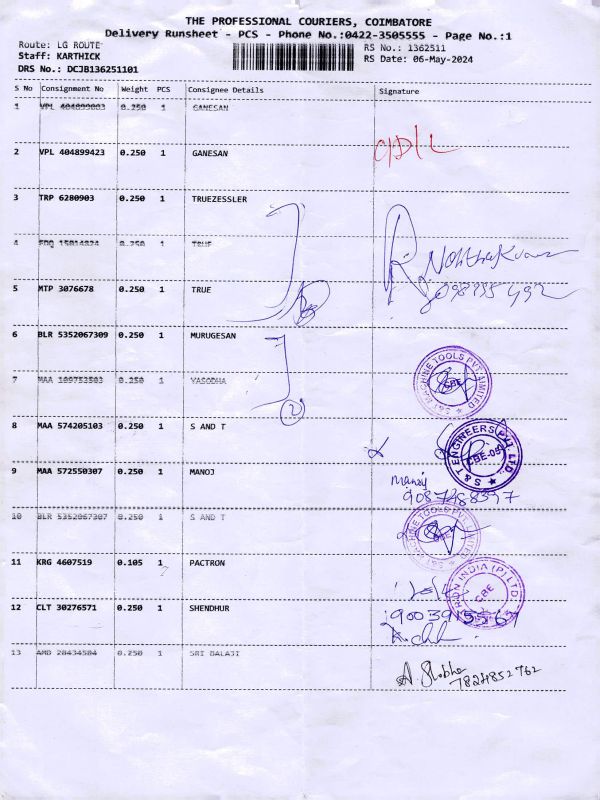 THE PROFESSIONAL COURIERS, COIMBATORE
Delivery Runsheet - PCS - Phone No.:0422-3505555 - Page No.:1
Route: LG ROUTE RS No.: 1362511
Staff: KARTHICK RS Date: 06-May-2024
DRS No.: DCJB136251101
S No Consignment No Weight PCS Consignee Details Signature
1 VPL 0.250 1 GANESAN
2 VPL 404899423 0.250 1 GANESAN
3 TRP 6280903 0.250 1 TRUEZESSLER
4 0.250 1 TRUE
5 MTP 3076678 0.250 1 TRUE
6 BLR 5352067309 0.250 1 MURUGESAN
MACHINE TOOLS PVT. LIMITED
CBE
7 MAA 0.250 1 YASODHA
2
8 MAA 574205103 0.250 1 S AND T
S & T ENGINEERS PVT. LTD.
CBE-05
9 MAA 572550307 0.250 1 MANOJ
Manoj
10 BLR 5352067307 0.250 1 S AND T
MACHINE TOOLS PVT.
11 KRG 4607519 0.105 1 PACTRON
INDIA (P) LTD
CBE
12 CLT 30276571 0.250 1 SHENDHUR
13 AMD 0.250 1 SRI BALAJI
A. Shobha
7824852762